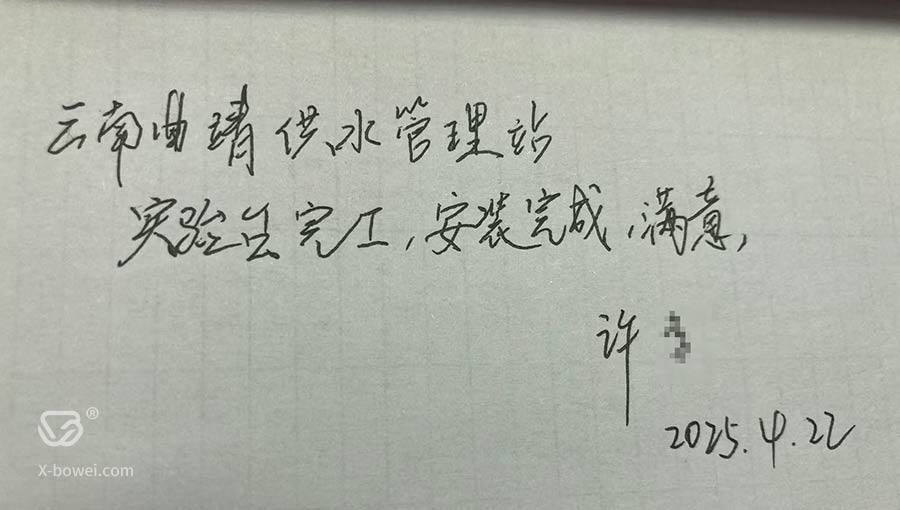 云南曲靖供水管理站
实验台完工,安装完成,满意,
许
2025.4.22
®
X-bowei.com